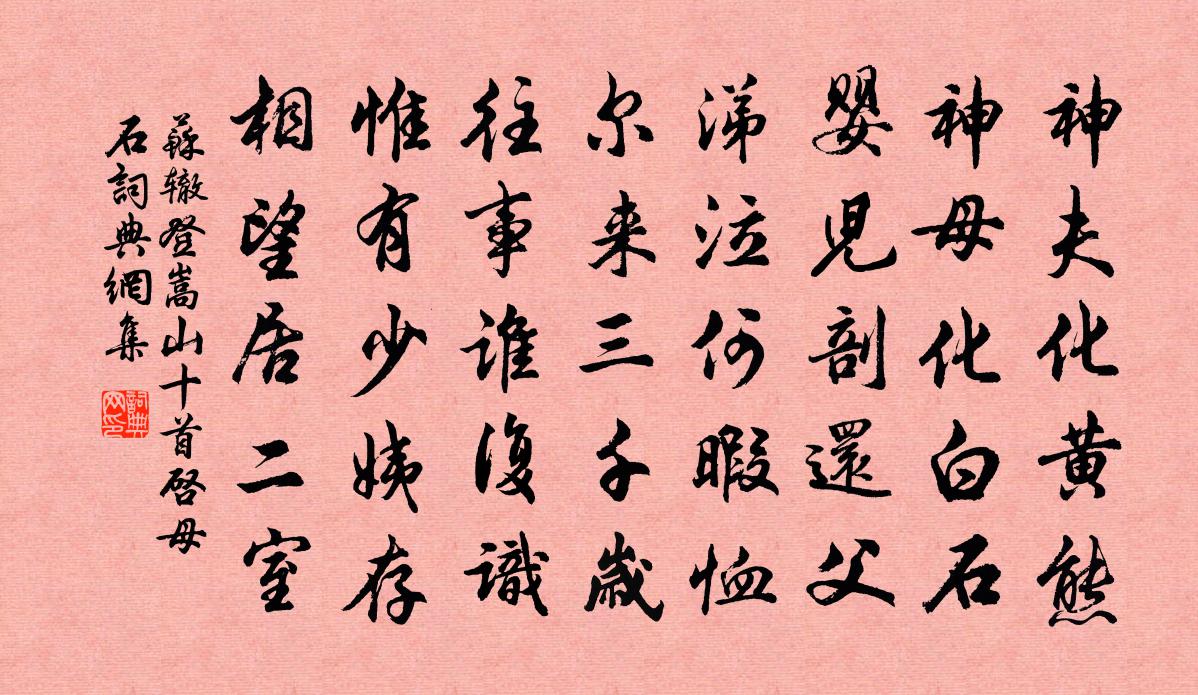 神夫化黄熊
神母化白石
嬰児剖還父
涕泣何暇恤
尔来三千歲
往事誰復識
惟有少姨存
相望居二室
蘇辙登嵩山十首啓母
石詞典網集
詞典网印